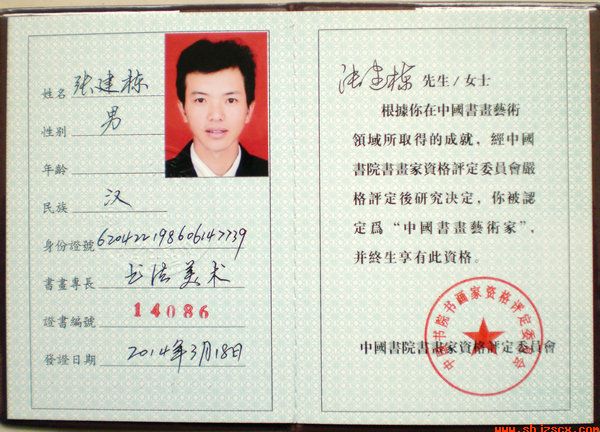 姓名 张建栋
性别 男
年齡
民族 汉
身份證號 620422198606147739
書畫專長 书法美术
證書編號 14086
發證日期 2014年3月18日
张建栋 先生/女士
根據你在中國書畫藝術
領域所取得的成就，經中國
書院書畫家資格評定委員會嚴
格評定後研究决定，你被認
定爲“中國書畫藝術家”，
并終生享有此資格。
中國書院書畫家資格評定委員會
中国书院书画家资格评定委员会
www.shjzscx.com